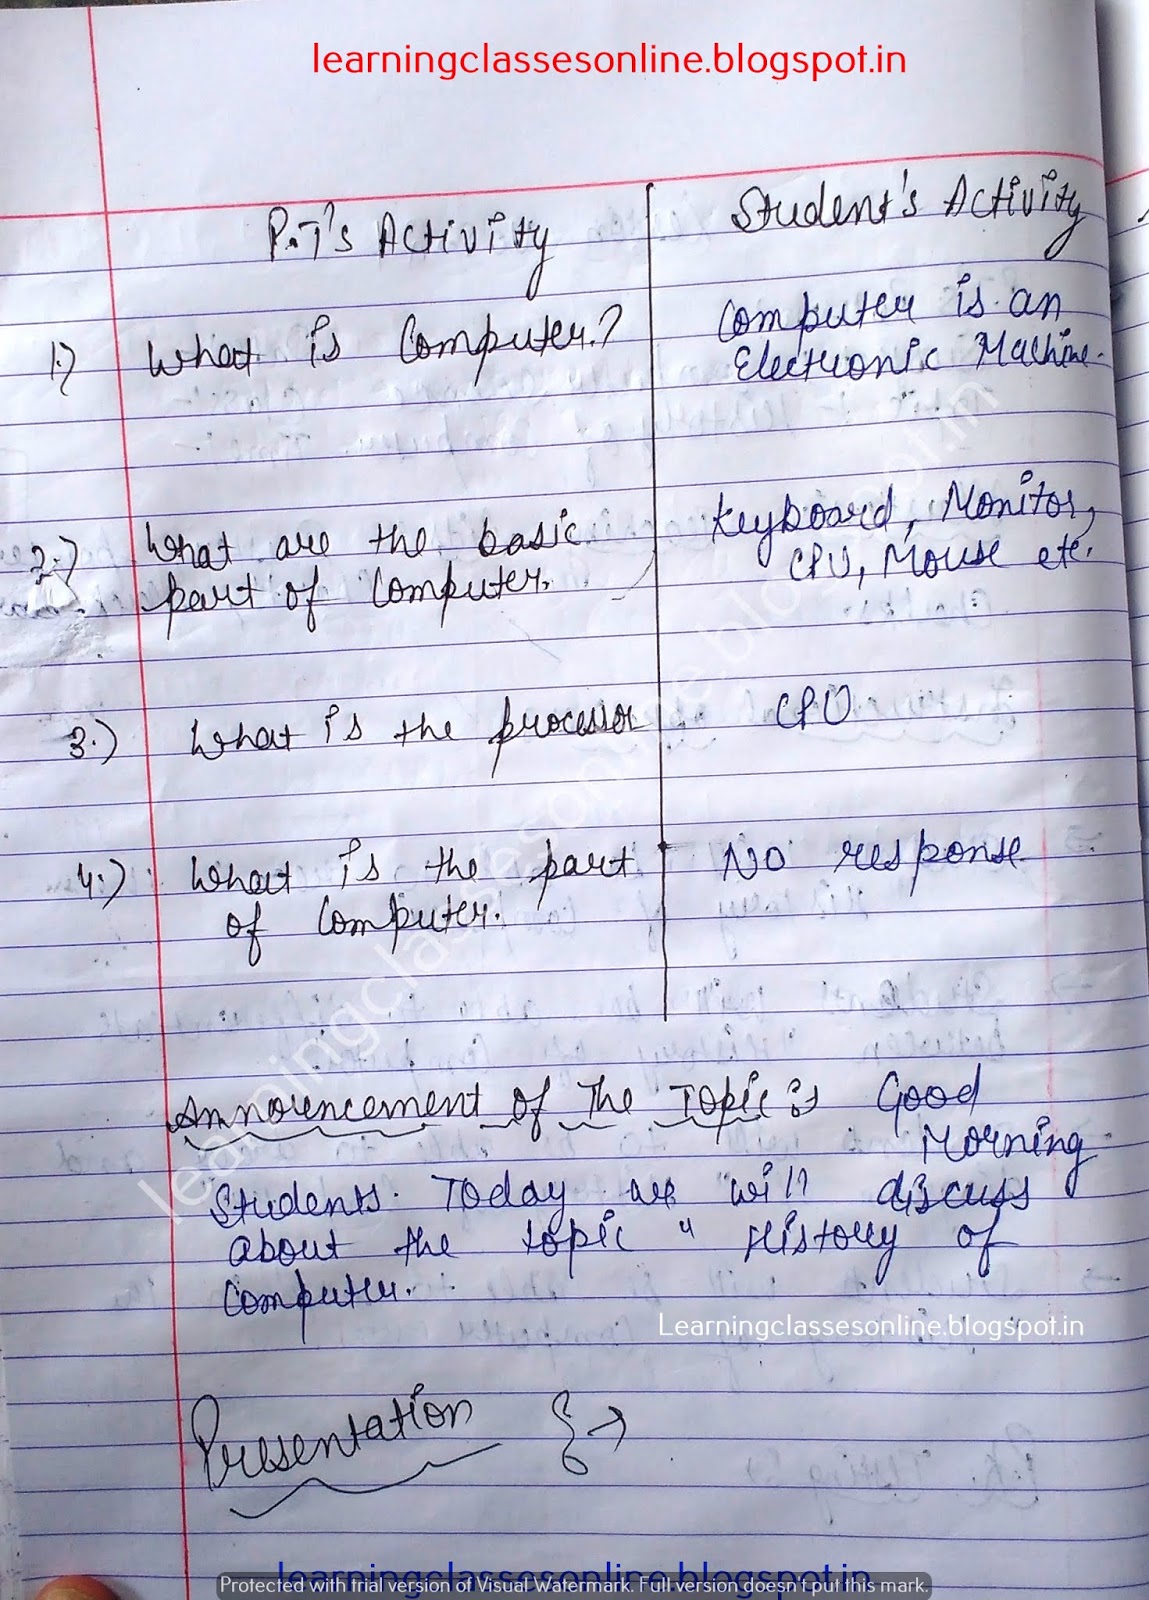 learningclassesonline.blogspot.in
P.T's Activity
Student's Activity
1.) What is Computer.?
Computer is an
Electronic Machine.
2.) What are the basic
part of Computer.
Keyboard, Monitor,
CPU, Mouse etc.
3.) What is the processor
CPU
4.) What is the part
of Computer.
No response
Announcement of The Topic :- Good
Morning
Students. Today we will discuss
about the topic " History of
Computer.
Learningclassesonline.blogspot.in
Presentation } →
learningclassesonline.blogspot.in
learningclassesonline.blogspot.in
Protected with trial version of Visual Watermark. Full version doesn't put this mark.